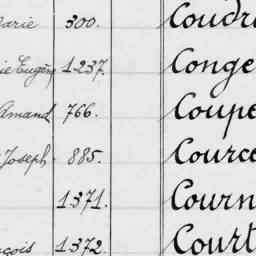 arie 300. Coudr
ie Eugène 1237. Conge
Amand 766. Coupe
Joseph 885. Cource
1371. Courn
çois 1372. Court